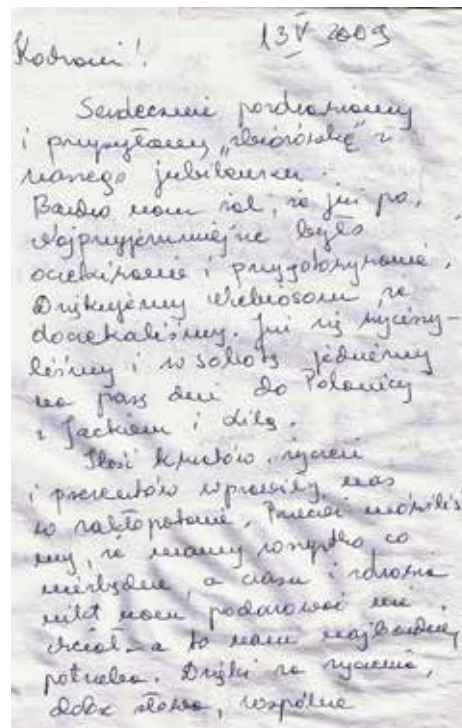 13 V 2009
Kochani!
Serdecznie pozdrawiamy
i przysyłamy „zbiorówkę" z
naszego jubileuszu.
Bardzo nam żal, że już po.
Najprzyjemniejsze było
oczekiwanie i przygotowywanie.
Dziękujemy Niebiosom że
doczekaliśmy. Już się wyciszy-
liśmy i w sobotę jedziemy
na parę dni do Polanicy
z Jackiem i Lilą.
Ilość kwiatów, życzeń
i prezentów wprawiły nas
w zakłopotanie. Przecież mówiliś
my, że mamy wszystko co
niezbędne, a czasu i zdrowia
nikt nam podarować nie
chciał – a to nam najbardziej
potrzeba. Dzięki za życzenia,
dobre słowa, wspólne